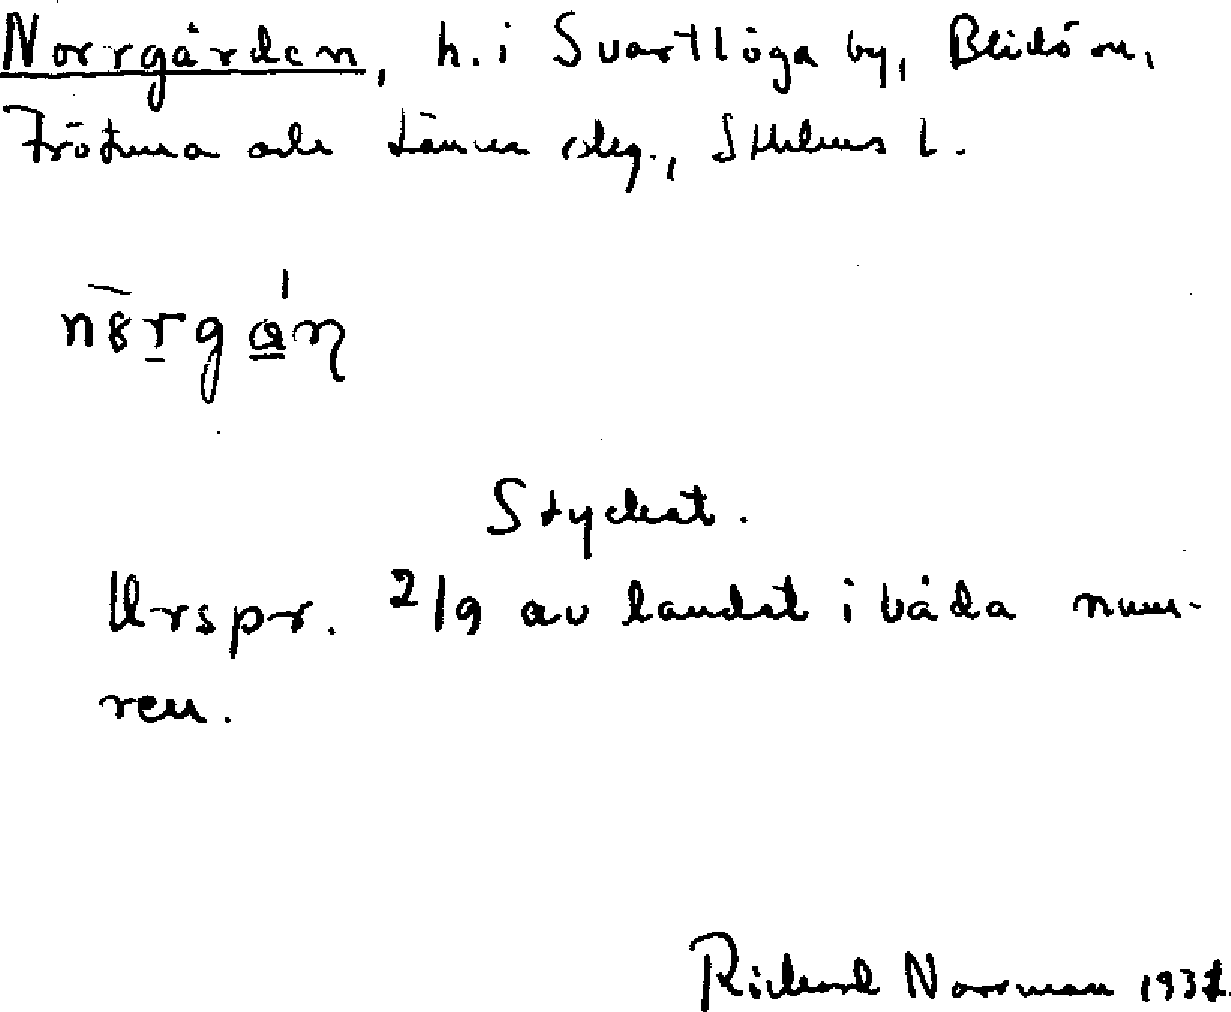 Norrgården, h. i Svartlöga by, Blidö sn,
Frötuna och Länna slg., Sthlms l.
Styckat.
Urspr. 2/9 av landet i båda num-
ren.
Richard Norrman